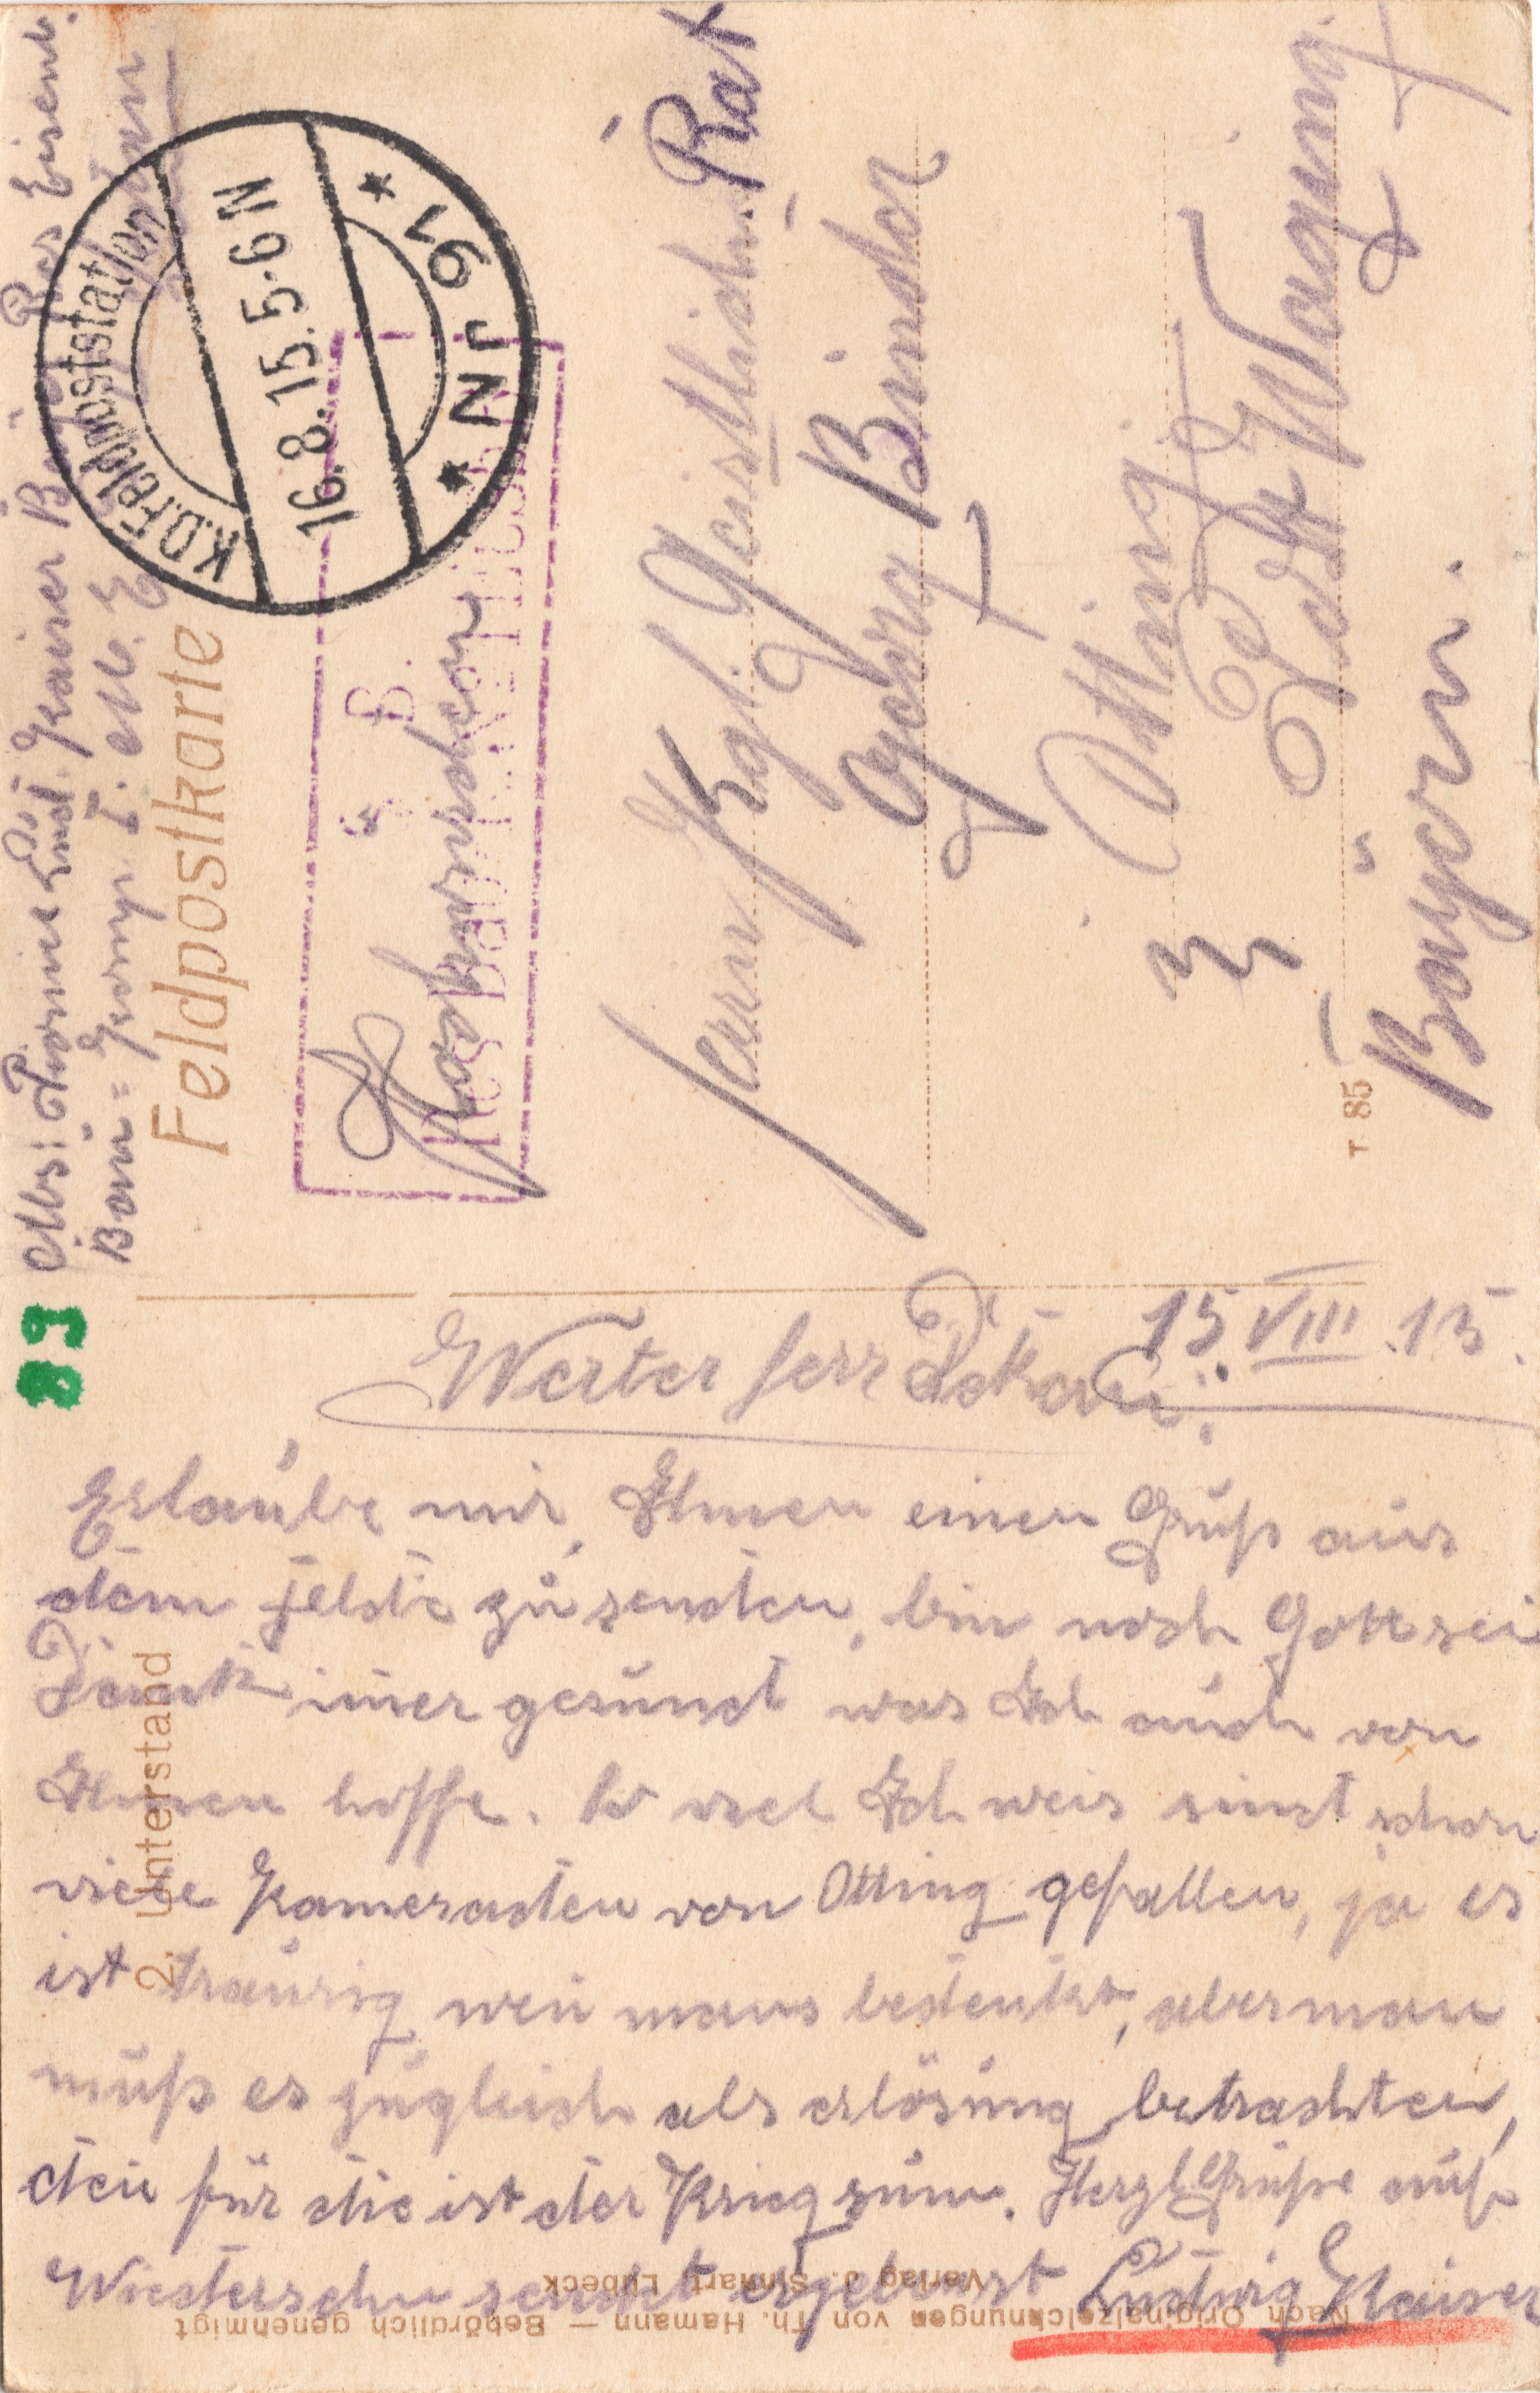 Abs: Pionier Ludw. Glaiser Bayr. Res. Eisenb.
Bau= Komp. I. M. E.
Feldpostkarte
K.D.Feldpoststation
16.8.15.5-6N
* Nr 91 *
S. B.
Herrn Kgl. Geistlichen Rat
Georg Bindor
in Otting
Post Waging
Bayern.
T 85
83
15. VIII. 15.
Werter Herr Dekan!
Erlaube mir, Ihnen einen Gruß aus
dem Felde zu senden, bin noch Gott sei
Dank imer gesund was Ich auch von
Ihnen hoffe. So viel Ich weis sind schon
viele Kameraden von Otting gefallen, ja es
ist traurig wen mans bedenkt, aber man
muß es zugleich als erlösung betrachten,
den für die ist der Krieg rum. Herzl. Grüße auf
Wiedersehn sendet ergebenst Ludwig Glaiser
2. Unterstand
Nach Originalzeichnungen von Th. Hamann — Behördlich genehmigt
Verlag J. Sinkart, Lübeck